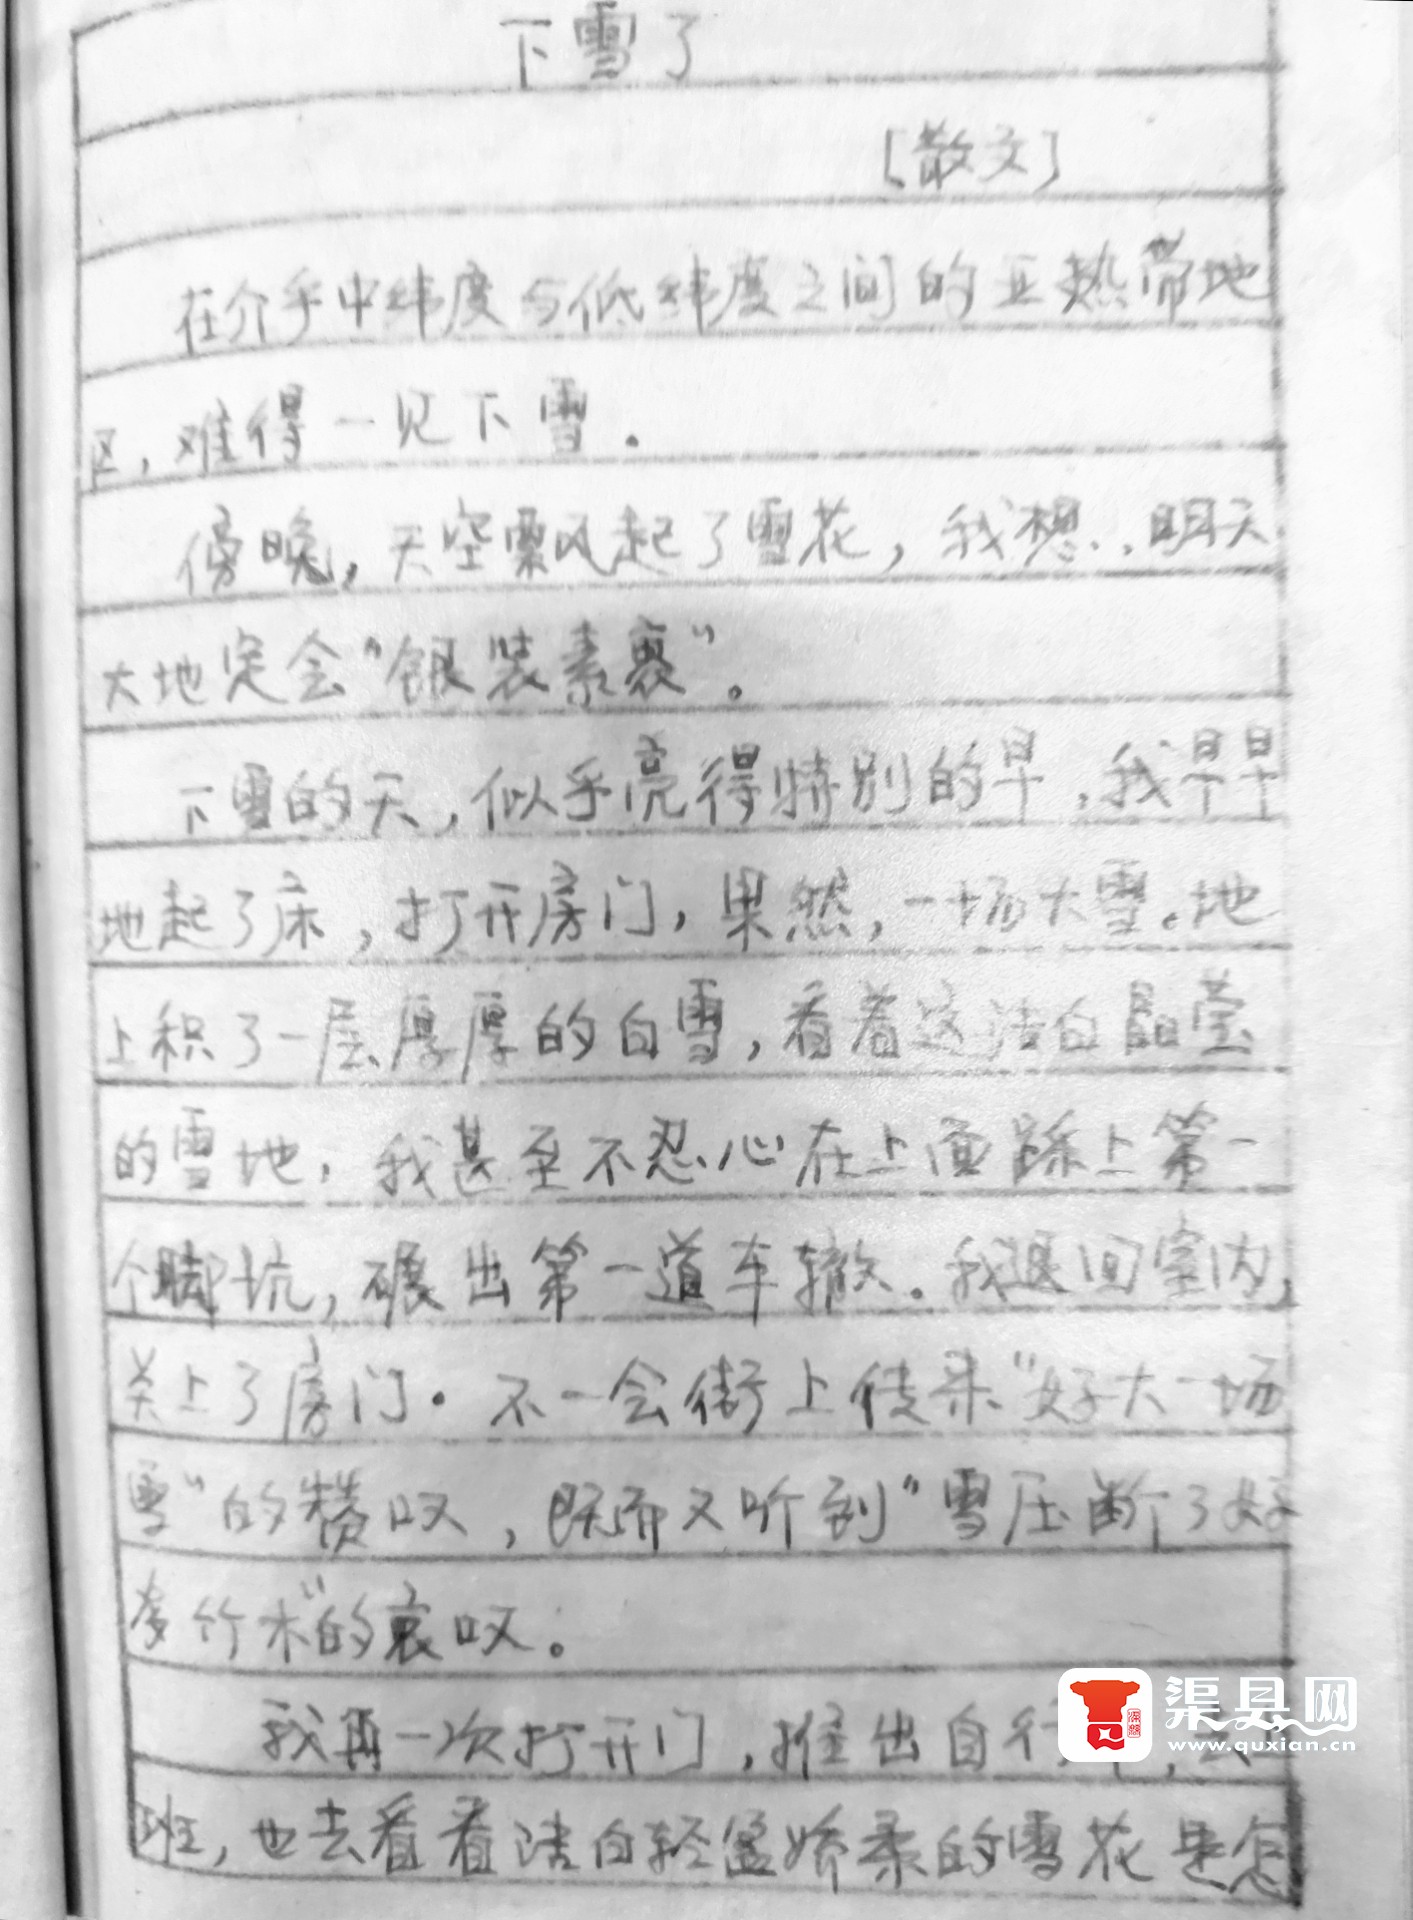 下雪了
[散文]
在介乎中纬度与低纬度之间的亚热带地
区，难得一见下雪。
傍晚，天空飘起了雪花，我想，明天
大地定会“银装素裹”。
下雪的天，似乎亮得特别的早，我早早
地起了床，打开房门，果然，一场大雪。地
上积了一层厚厚的白雪，看着这洁白晶莹
的雪地，我甚至不忍心在上面踩上第一
个脚坑，碾出第一道车辙。我退回室内，
关上了房门。不一会街上传来“好大一场
雪”的赞叹，既而又听到“雪压断了好
多竹木”的哀叹。
我再一次打开门，推出自行
班，也去看看洁白轻盈娇柔的雪花是怎
渠县网
www.quxian.cn